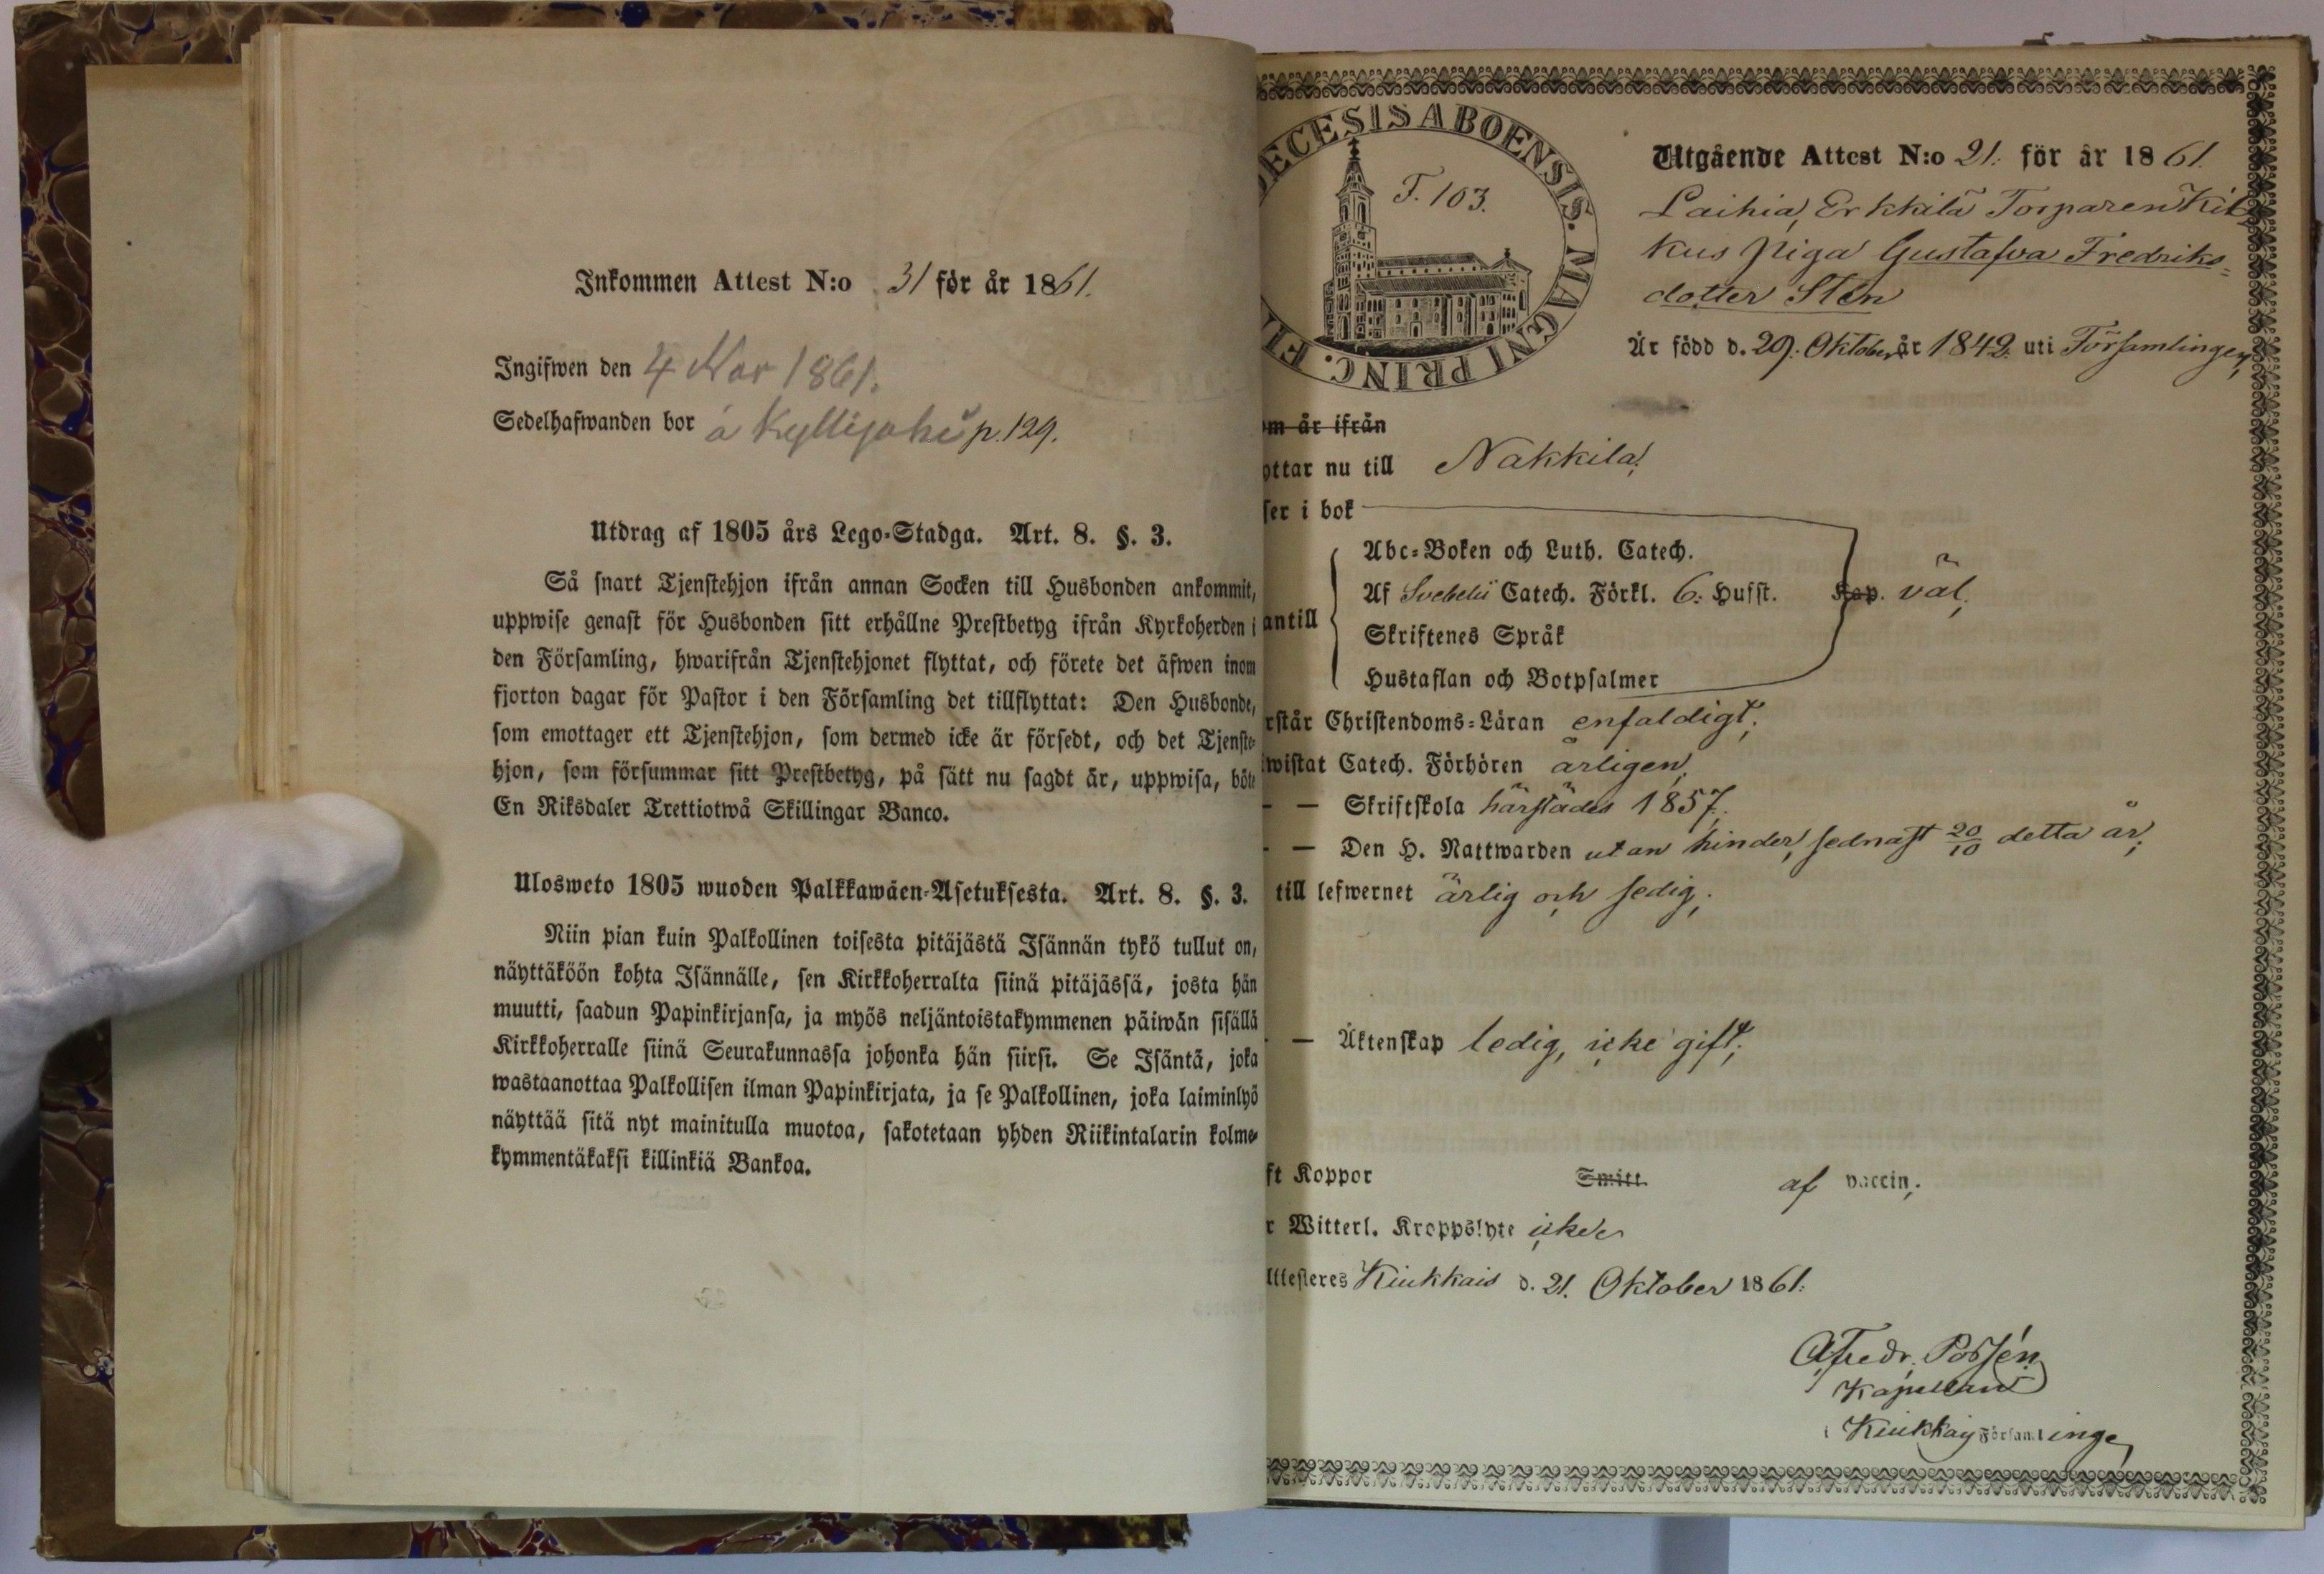 Inkommen Attest N:o 31 för år 1861.
Ingifwen den 4 Nov 1861.
Sedelhafwanden bor å Kyllijoki p. 129.
Utdrag af 1805 års Lego-Stadga. Art. 8. §. 3.
Så snart Tjenstehjon ifrån annan Socken till Husbonden ankommit,
uppwise genast för Husbonden sitt erhållne Prestbetyg ifrån Kyrkoherden i
den Församling, hwarifrån Tjenstehjonet flyttat, och förete det äfwen inom
fjorton dagar för Pastor i den Församling det tillflyttat: Den Husbonde,
som emottager ett Tjenstehjon, som dermed icke är försedt, och det Tjenste-
hjon, som försummar sitt Prestbetyg, på sätt nu sagdt är, uppwisa, böte
En Riksdaler Trettiotwå Skillingar Banco.
Ulosweto 1805 wuoden Palkkawäen-Asetuksesta. Art. 8. §. 3.
Niin pian kuin Palkollinen toisesta pitäjästä Isännän tykö tullut on,
näyttäköön kohta Isännälle, sen Kirkkoherralta siinä pitäjässä, josta hän
muutti, saadun Papinkirjansa, ja myös neljäntoistakymmenen päiwän sisällä
Kirkkoherralle siinä Seurakunnassa johonka hän siirsi. Se Isäntä, joka
wastaanottaa Palkollisen ilman Papinkirjata, ja se Palkollinen, joka laiminlyö
näyttää sitä nyt mainitulla muotoa, sakotetaan yhden Riikintalarin kolme-
kymmentäkaksi killinkiä Bankoa.
ECESIS ABOENSIS. MAGNI PRINC. FI
F. 103.
Utgående Attest N:o 21. för år 1861.
Laihia, Erkkilä Torparen
kus piga Gustafva Fredriks-
dotter Sten
Är född d. 29. Oktober år 1842. uti Församlingen,
m är ifrån
ottar nu till Nakkila;
ser i bok
Abc-Boken och Luth. Catech.
Af Svebelii Catech. Förkl. 6. Hufst. Kap. väl;
antill
Skriftenes Språk
Hustaflan och Botpsalmer
rstår Christendoms-Läran enfaldigt;
wistat Catech. Förhören årligen;
— — Skriftskola härstädes 1857;
— — Den H. Nattwarden utan hinder, sednast 20/10 detta år;
till lefwernet ärlig och sedig;
— — Äktenskap ledig, icke gift;
ft Koppor Smitt. af vaccin;
r Witterl. Kroppslyte icke.
ttesteres Kiukkais d. 21. Oktober 1861.
Afredr. Possén
Kapellan
i Kiukkais Församlinge